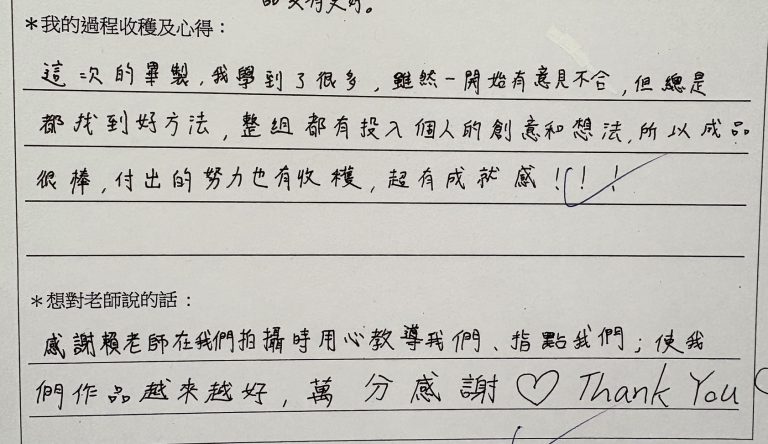 更好。
*我的過程收穫及心得：
這次的畢製，我學到了很多，雖然一開始有意見不合，但總是
都找到好方法，整組都有投入個人的創意和想法，所以成品
很棒，付出的努力也有收穫，超有成就感！！！
*想對老師說的話：
感謝賴老師在我們拍攝時用心教導我們、指點我們；使我
們作品越來越好，萬分感謝♡ Thank You